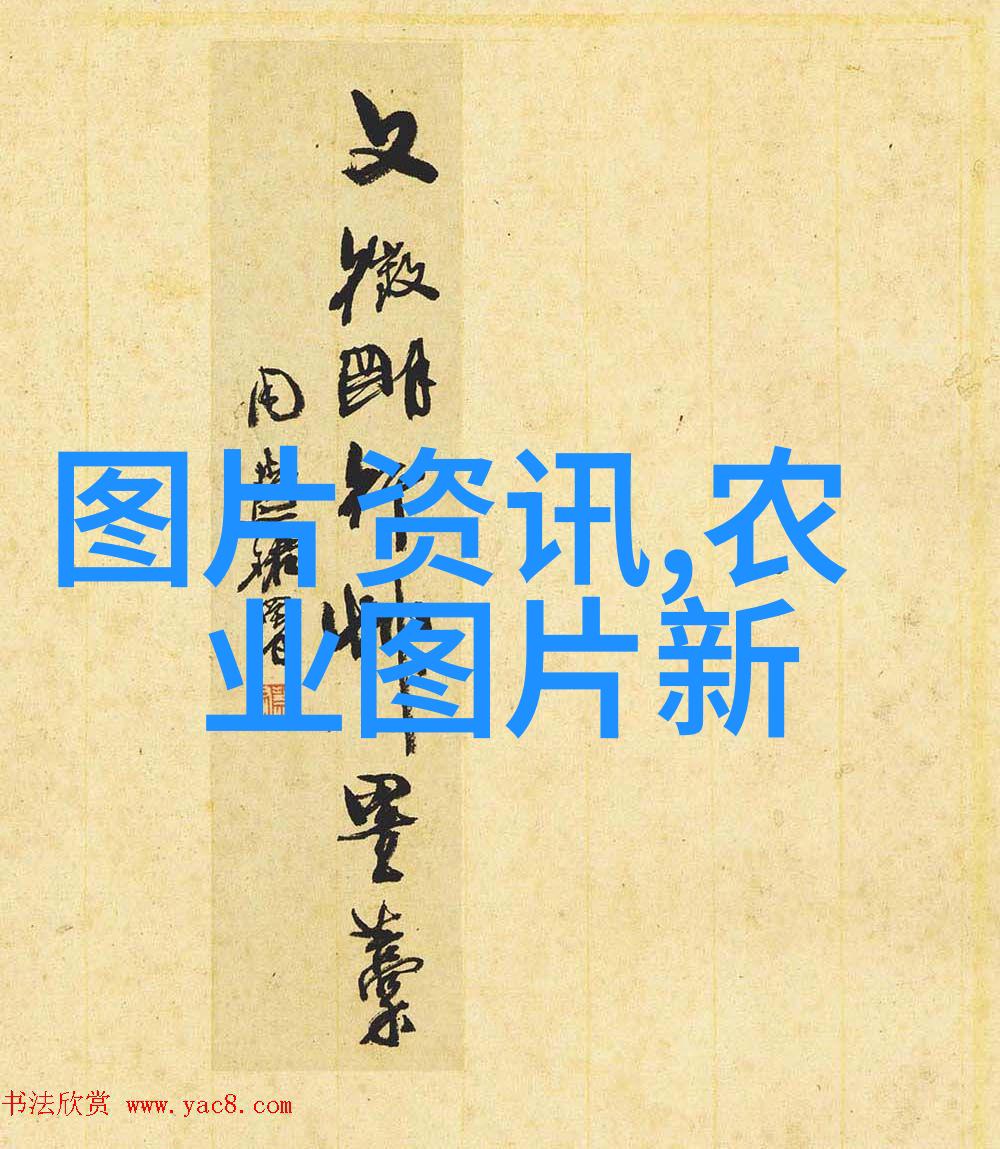 文徵明行草墨藁
图片资讯,农
业图片新
书法欣赏 www.yac8.com